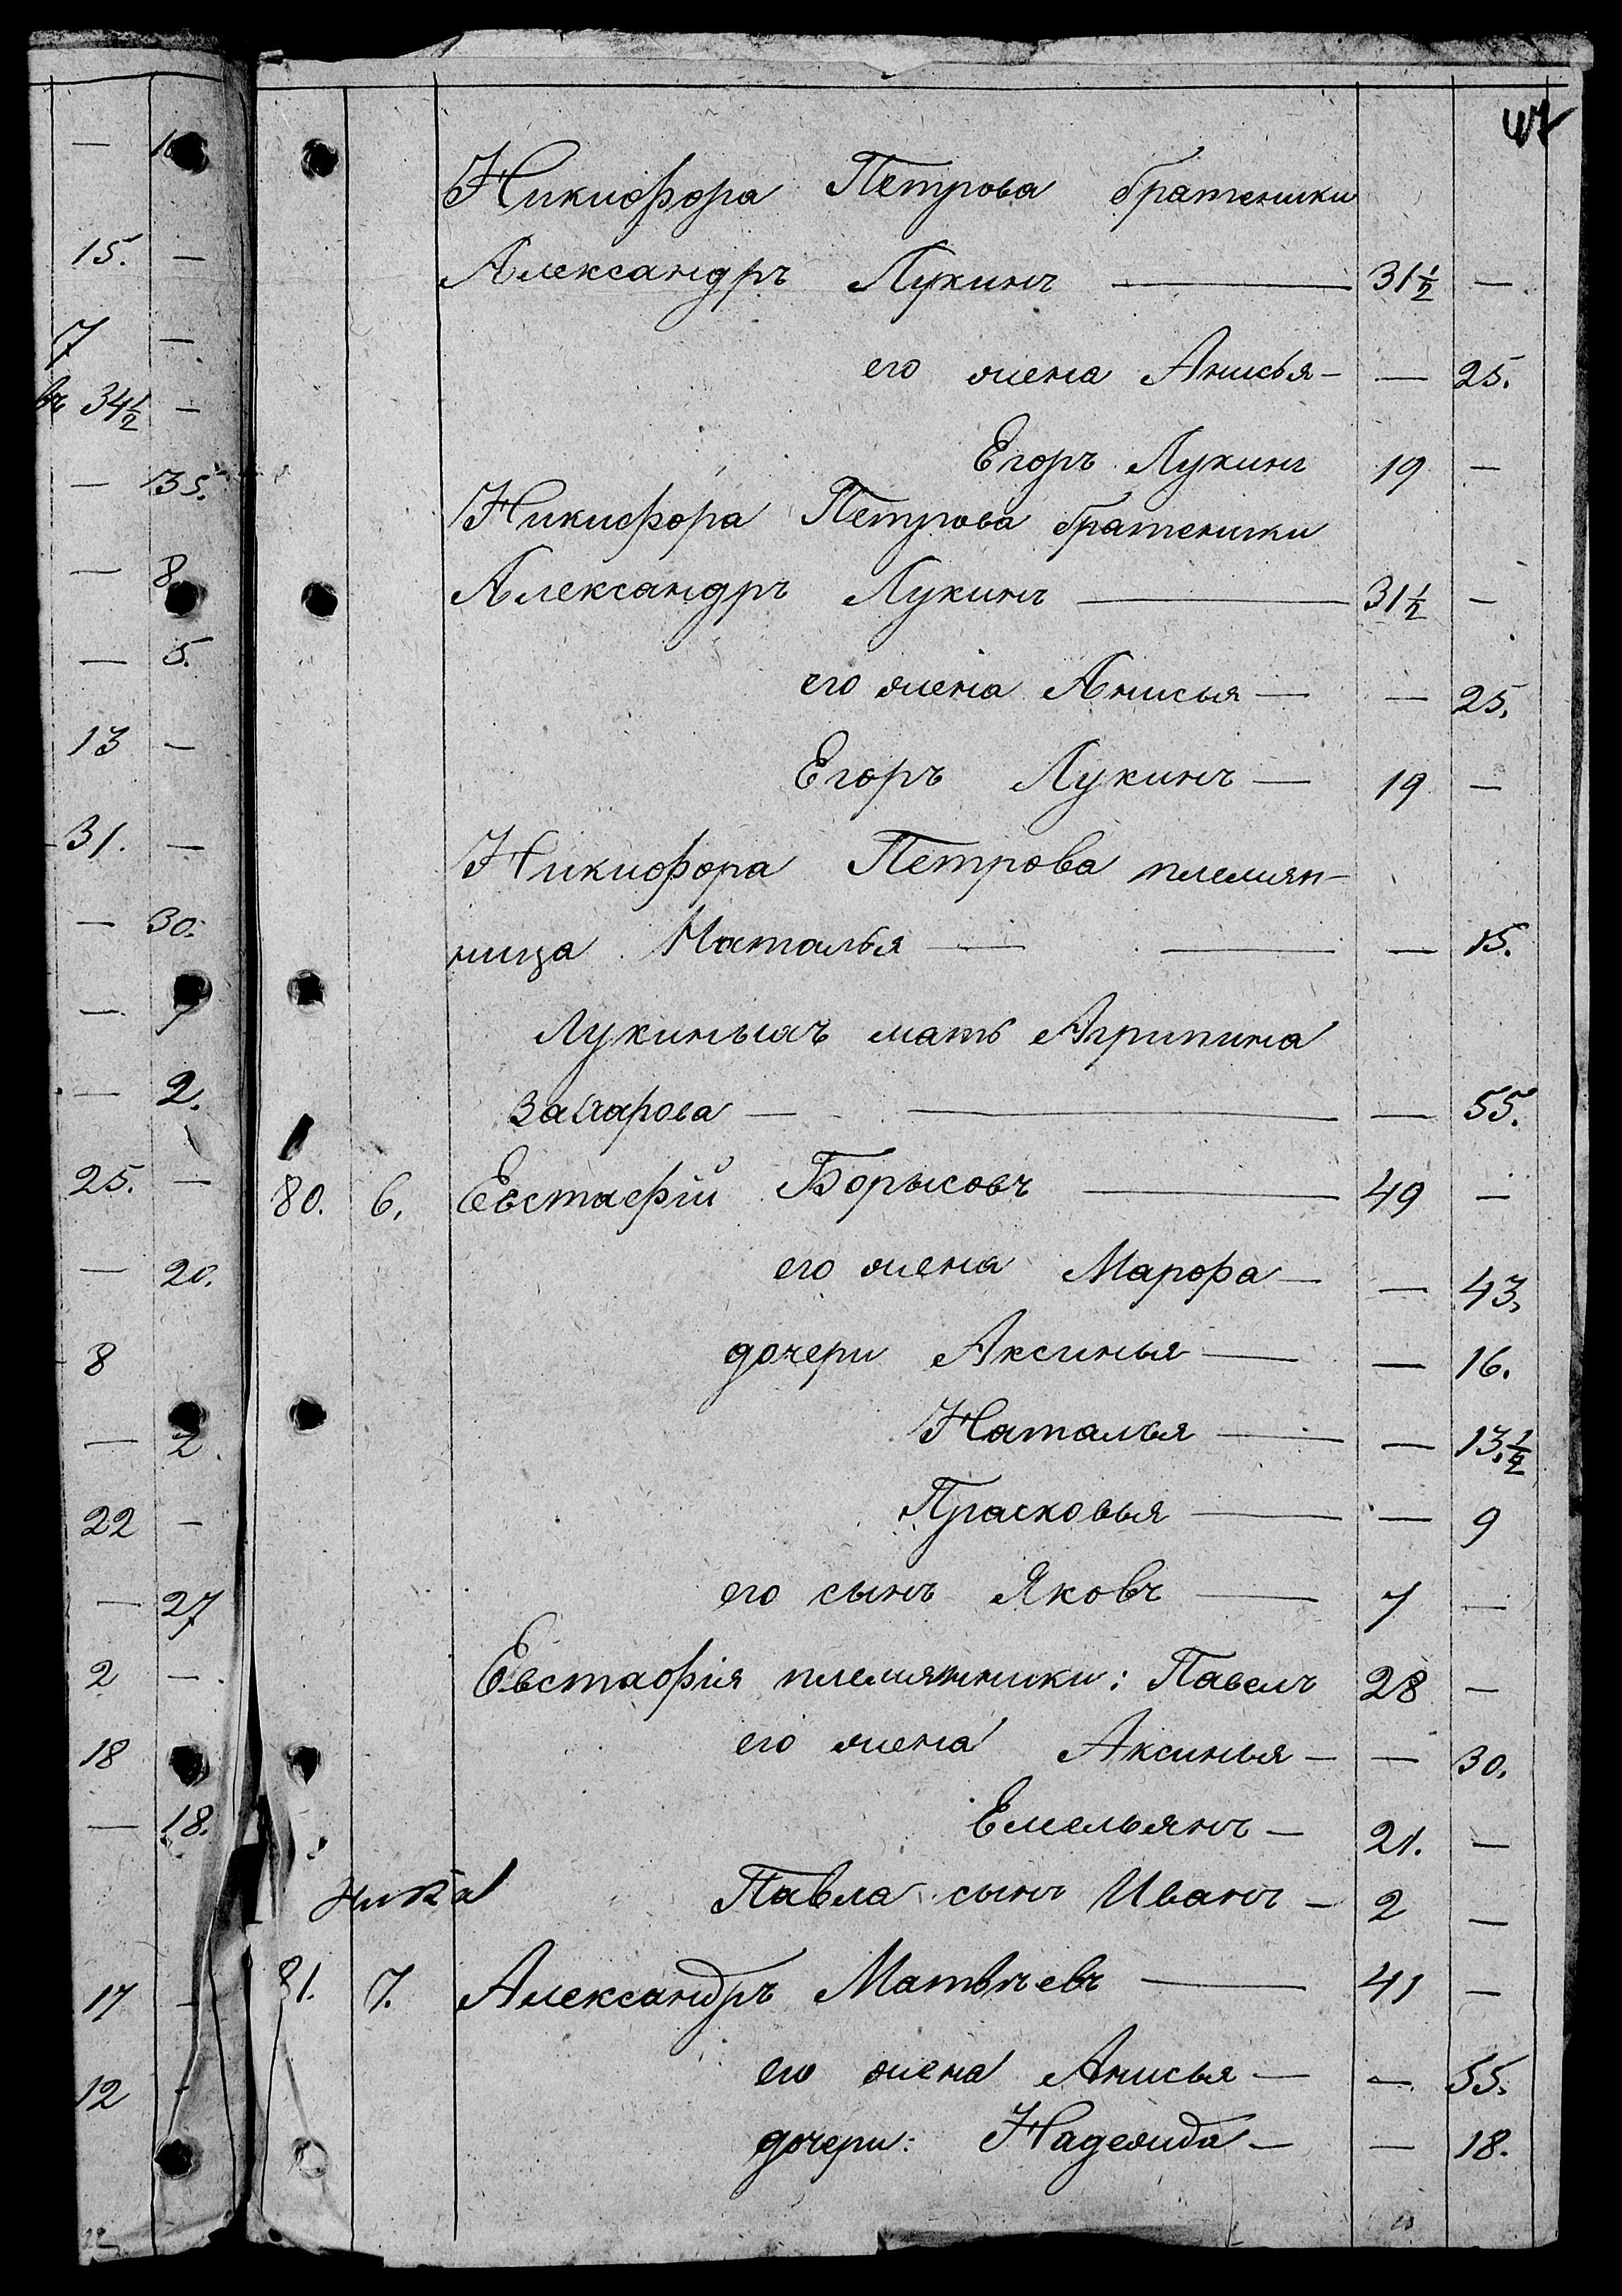 Никифора Петрова братеники
Александръ Лукинъ — 31½ —
его жена Анисья — — 25.
Егоръ Лукинъ 19 —
Никифора Петрова братеники
Александръ Лукинъ — 31½ —
его жена Анисья — — 25.
Егоръ Лукинъ — 19 —
Никифора Петрова племян-
ница Наталья — — — 15.
Лукиныхъ мать Агрипина
Захарова — — — 55.
80. 6. Евстафій Борысовъ — 49 —
его жена Марфа — — 43.
дочери Аксинья — — 16.
Наталья — — 13.½
Прасковья — — 9
его сынъ Яковъ — 7 —
Евстафія племянники: Павелъ 28 —
его жена Аксинья — — 30.
Емельянъ — 21. —
Павла сынъ Иванъ — 2 —
81. 7. Александръ Матвѣевъ — 41 —
его жена Анисья — — 55.
дочери: Надежда — — 18.
15. —
7 —
въ 34½ —
— 35.
— 8
— 5.
13 —
31. —
— 30.
— 7
— 2.
25. —
— 20.
8
— 2
22 —
— 27
2 —
18
— 18.
17 —
12 -